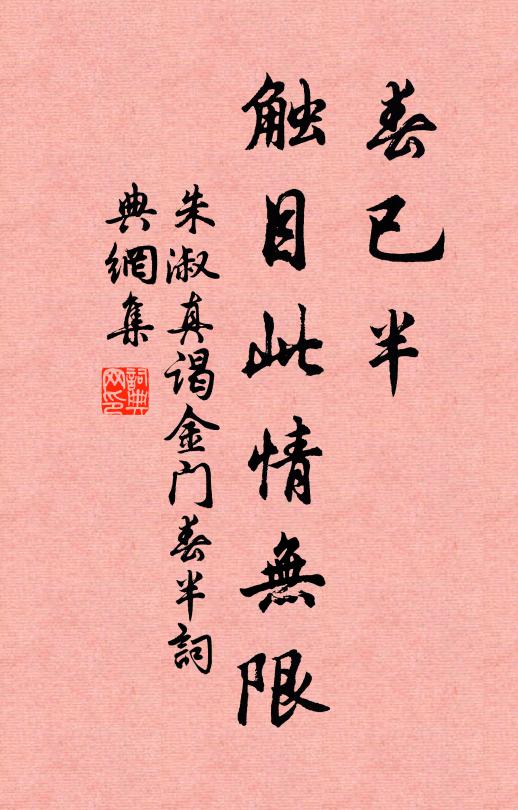 春已半
触目此情無限
朱淑真谒金门春半詞
典網集
詞典網印